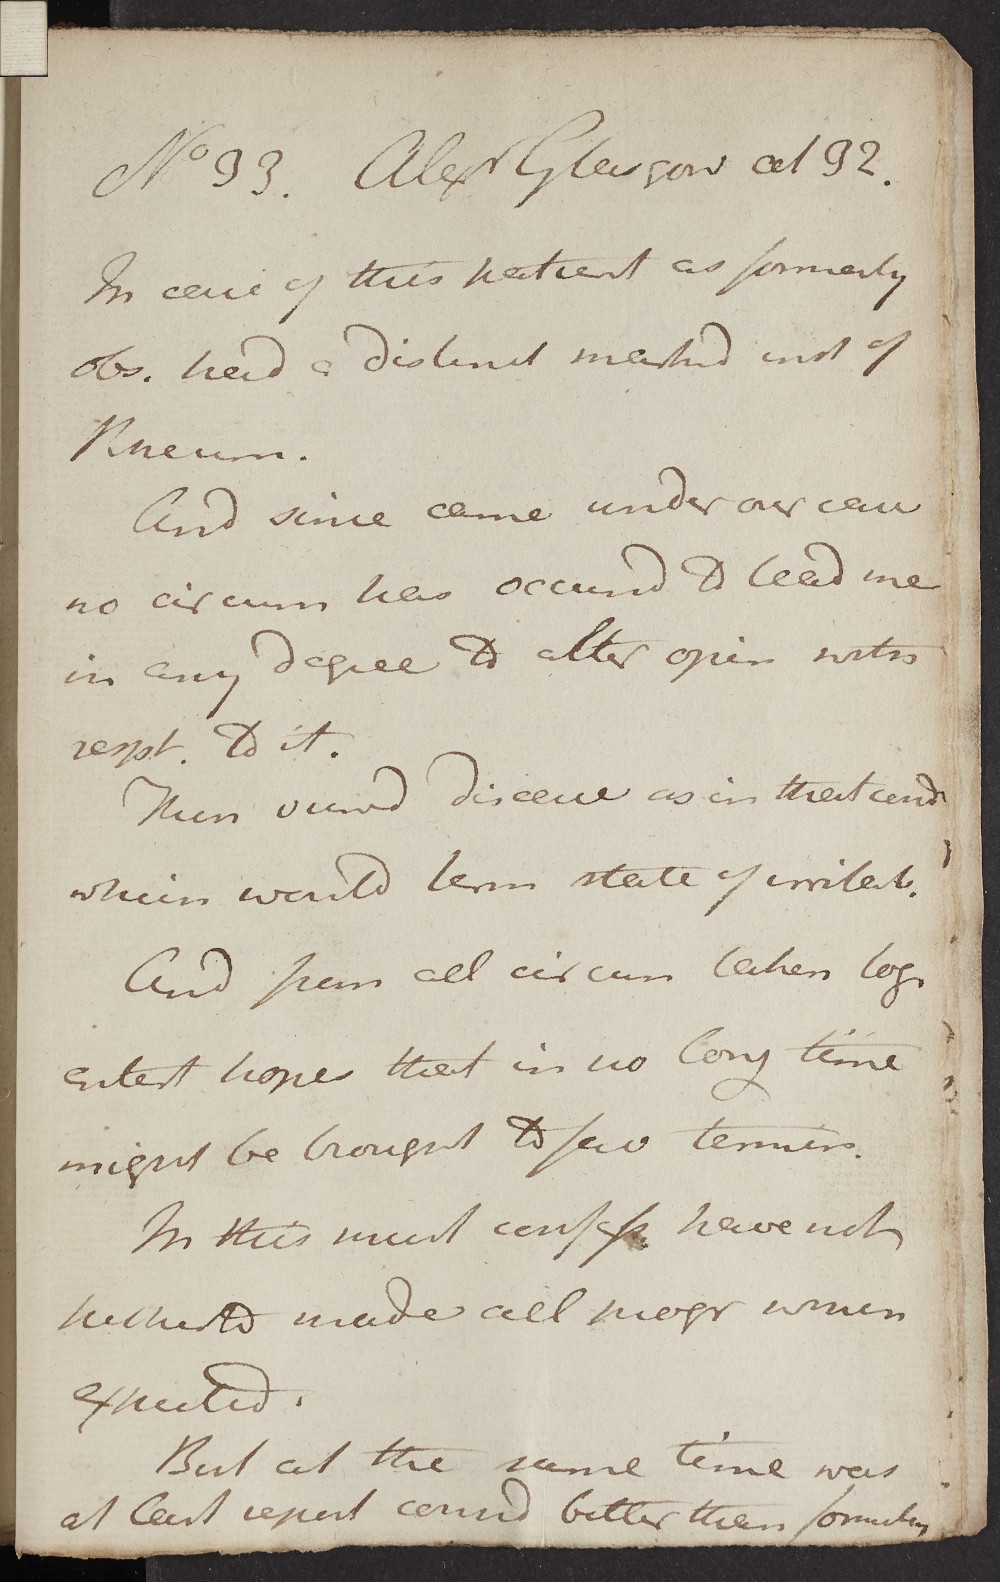 No 93. Alexr Glasgow aet 32.
In case of this patient as formerly
obs. had a distinct marked inst of
Rheum.
And since came under our care
no circum has occurrd to lead me
in any degree to alter opin with
respt. to it.
Then viewd disease as in that cond
which would term state of irritat.
And from all circum taken togr
entert hopes that in no long time
might be brought to fav termin.
In this must confess have not
hitherto made all progr which
expected.
But at the same time was
at last report considd better than formerly